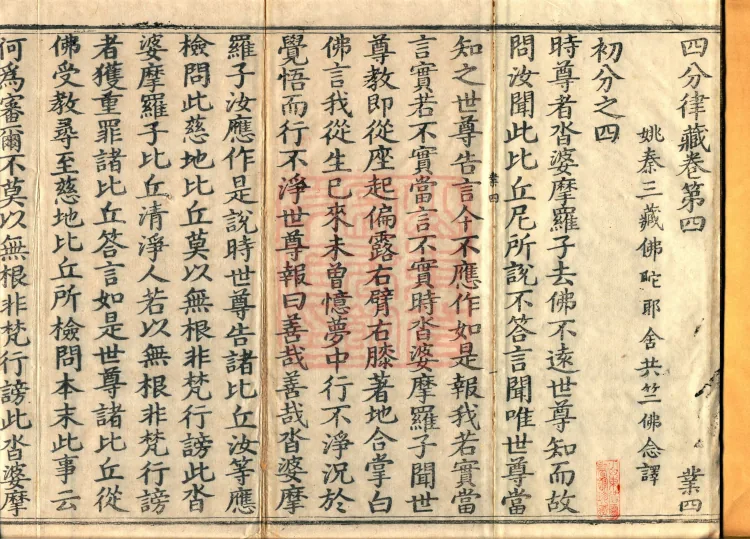 四分律藏卷第四 業四
姚秦三藏佛陀耶舍共竺佛念譯
初分之四
時尊者沓婆摩羅子去佛不遠世尊知而故
問汝聞此比丘尼所說不答言聞唯世尊當
知之世尊告言今不應作如是報我若實當
業四
言實若不實當言不實時沓婆摩羅子聞世
尊教即從座起偏露右臂右膝著地合掌白
佛言我從生已來未曾憶夢中行不淨況於
覺悟而行不淨世尊報曰善哉善哉沓婆摩
羅子汝應作是說時世尊告諸比丘汝等應
檢問此慈地比丘莫以無根非梵行謗此沓
婆摩羅子比丘清淨人若以無根非梵行謗
者獲重罪諸比丘答言如是世尊諸比丘從
佛受教尋至慈地比丘所檢問本末此事云
何為審爾不莫以無根非梵行謗此沓婆摩